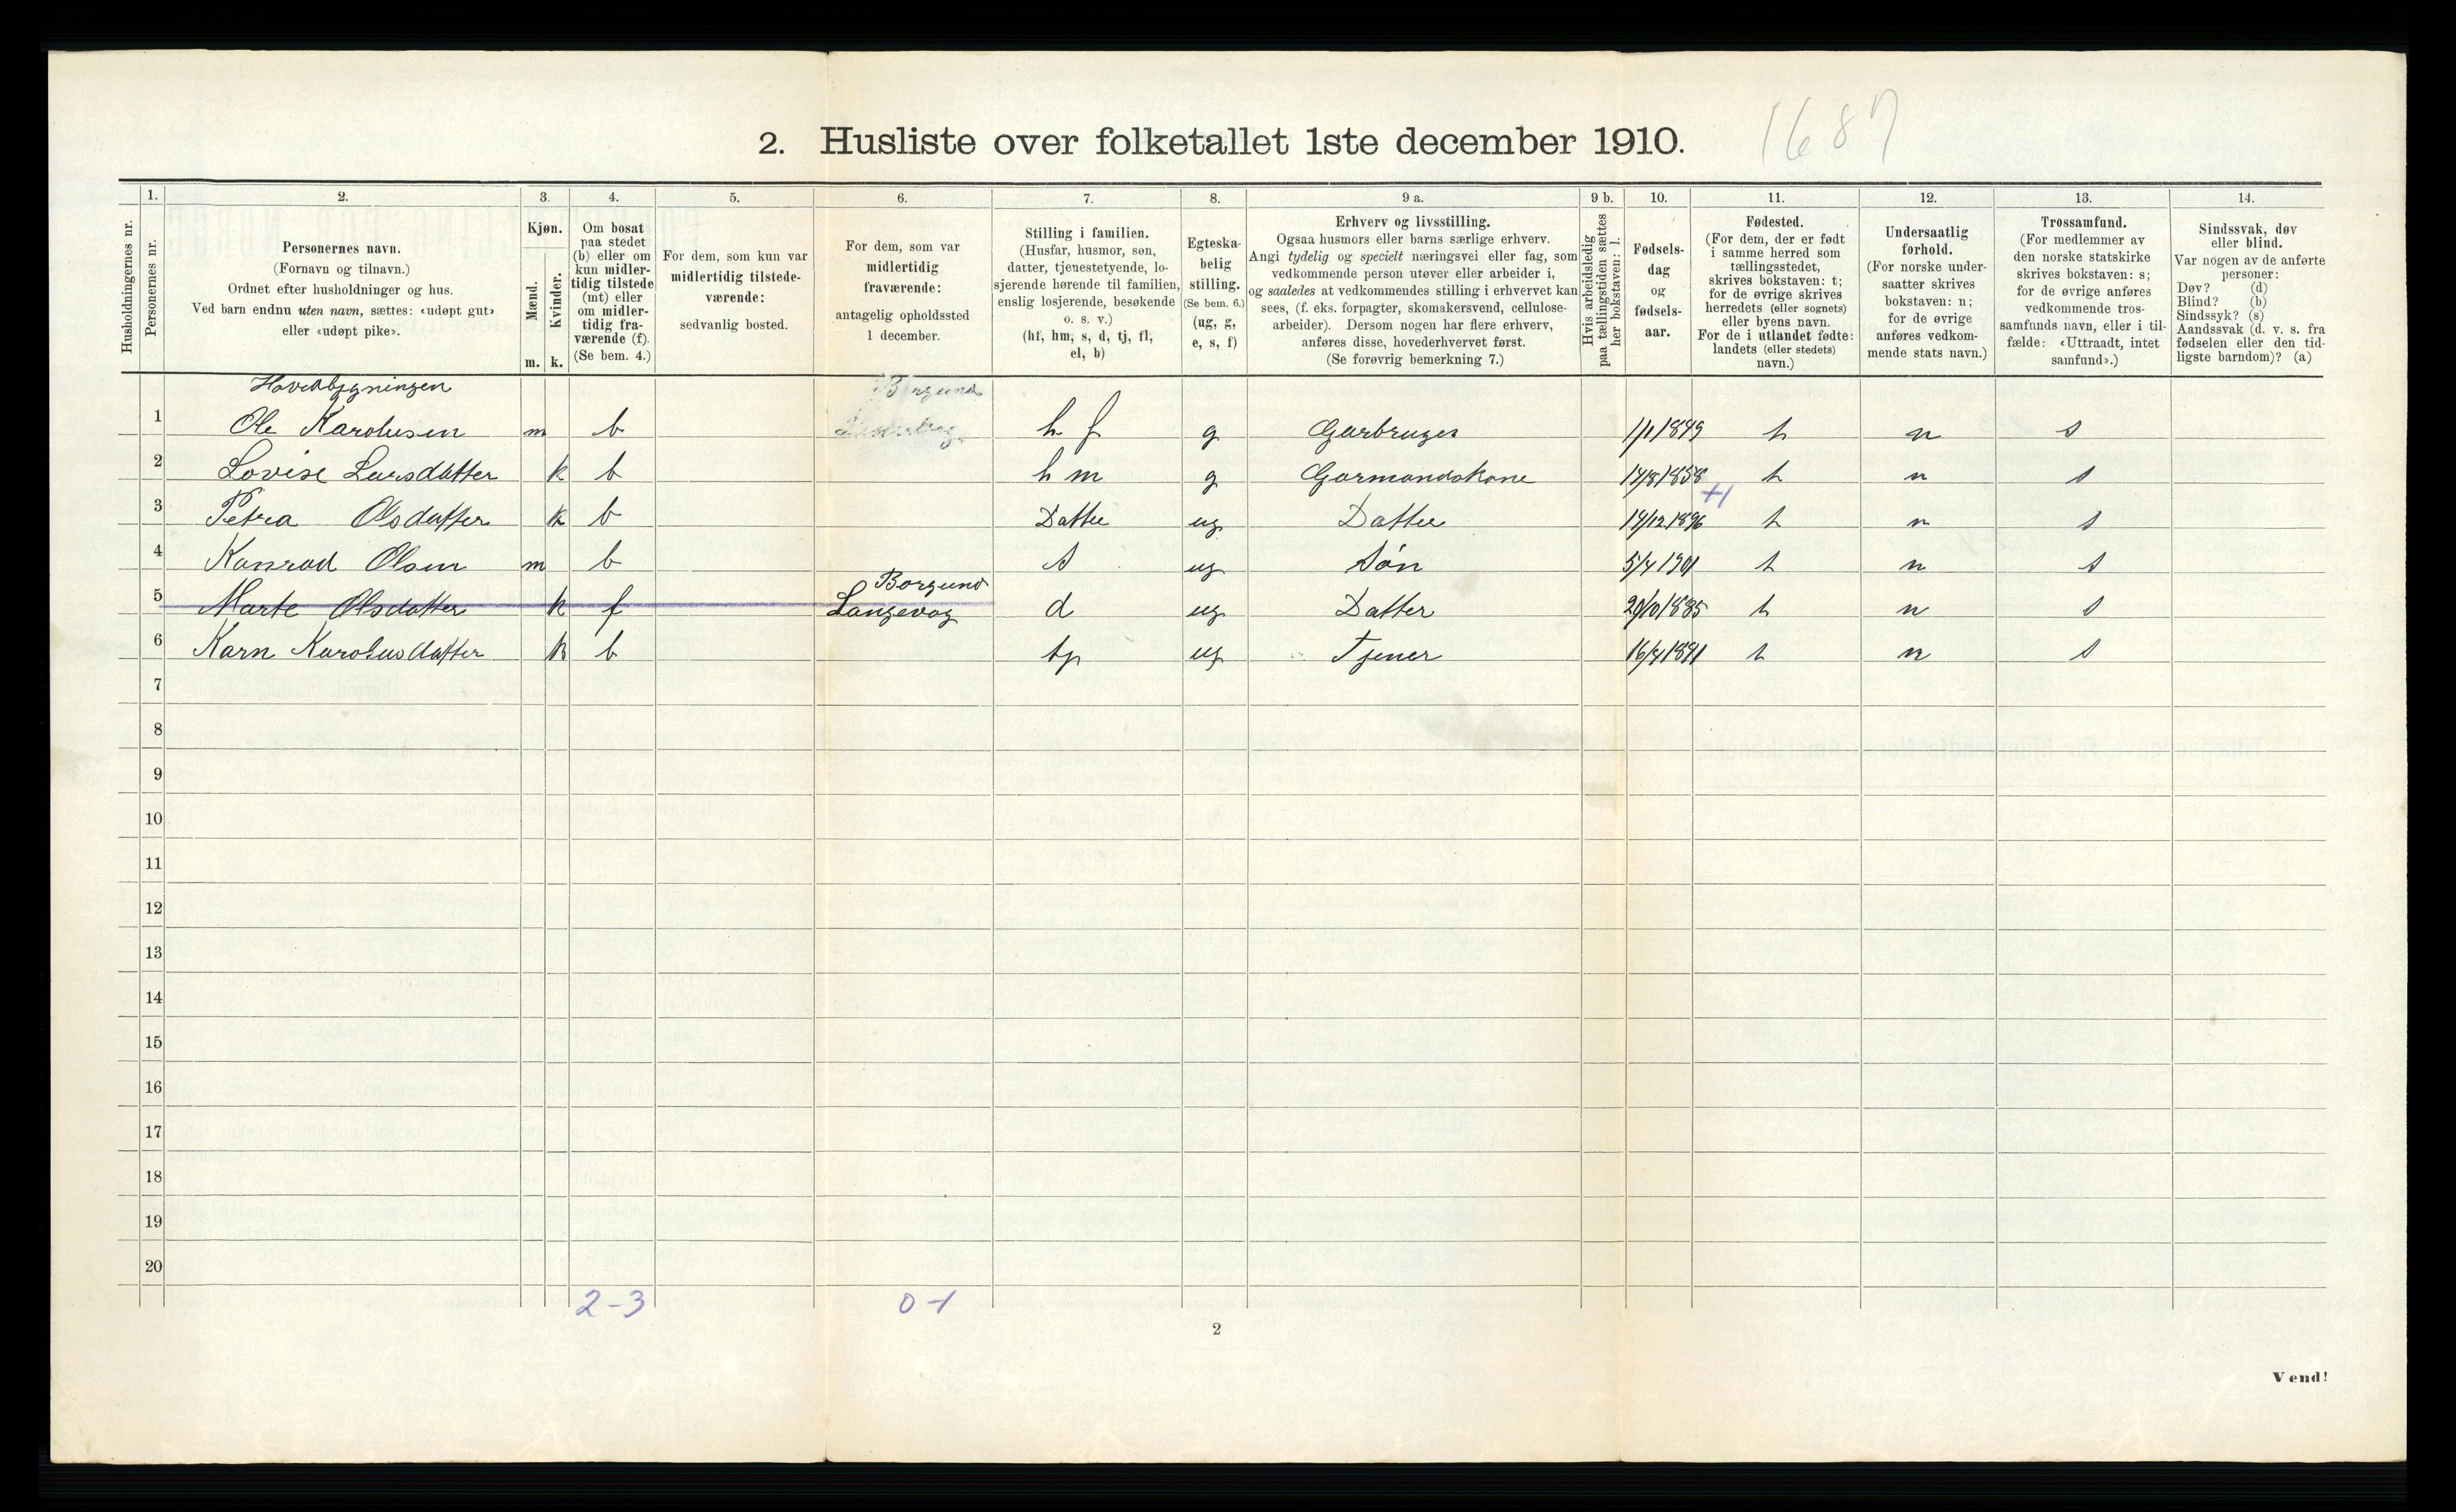 1687
2. Husliste over folketallet 1ste december 1910.
1. 2. 3. 4. 5. 6. 7. 8. 9 a. 9 b. 10. 11. 12. 13. 14.
Husholdningernes nr.
Personernes nr.
Personernes navn.
(Fornavn og tilnavn.)
Ordnet efter husholdninger og hus.
Ved barn endnu uten navn, sættes: «udøpt gut»
eller «udøpt pike».
Kjøn.
Mænd.
Kvinder.
m. k.
Om bosat
paa stedet
(b) eller om
kun midler-
tidig tilstede
(mt) eller
om midler-
tidig fra-
værende (f).
(Se bem. 4.)
For dem, som kun var
midlertidig tilstede-
værende:
sedvanlig bosted.
For dem, som var
midlertidig
fraværende:
antagelig opholdssted
1 december.
Stilling i familien.
(Husfar, husmor, søn,
datter, tjenestetyende, lo-
sjerende hørende til familien,
enslig losjerende, besøkende
o. s. v.)
(hf, hm, s, d, tj, fl,
el, b)
Egteska-
belig
stilling.
(Se bem. 6.)
(ug, g,
e, s, f)
Erhverv og livsstilling.
Ogsaa husmors eller barns særlige erhverv.
Angi tydelig og specielt næringsvei eller fag, som
vedkommende person utøver eller arbeider i,
og saaledes at vedkommendes stilling i erhvervet kan
sees, (f. eks. forpagter, skomakersvend, cellulose-
arbeider). Dersom nogen har flere erhverv,
anføres disse, hovederhvervet først.
(Se forøvrig bemerkning 7.)
Hvis arbeidsledig
paa tællingstiden sættes
her bokstaven: l.
Fødsels-
dag
og
fødsels-
aar.
Fødested.
(For dem, der er født
i samme herred som
tællingsstedet,
skrives bokstaven: t;
for de øvrige skrives
herredets (eller sognets)
eller byens navn.
For de i utlandet fødte:
landets (eller stedets)
navn.)
Undersaatlig
forhold.
(For norske under-
saatter skrives
bokstaven: n;
for de øvrige
anføres vedkom-
mende stats navn.)
Trossamfund.
(For medlemmer av
den norske statskirke
skrives bokstaven: s;
for de øvrige anføres
vedkommende tros-
samfunds navn, eller i til-
fælde: «Uttraadt, intet
samfund».)
Sindssvak, døv
eller blind.
Var nogen av de anførte
personer:
Døv? (d)
Blind? (b)
Sindssyk? (s)
Aandssvak (d. v. s. fra
fødselen eller den tid-
ligste barndom)? (a)
Hovedbygningen Borgund
1 Ole Karolusen m b h f g Garbruger 1/1 1849 t n s
2 Lovise Larsdatter k b h m g Garmandskone 14/8 1858 t n s
+1
3 Petra Olsdatter k b Datter ug Datter 14/12 1896 t n s
4 Konrad Olsen m b s ug Søn 5/4 1901 t n s
Borgund
5 Marte Olsdatter k f Langevog d ug Datter 20/10 1885 t n s
6 Karn Karolusdatter k b tj ug Tjener 16/4 1891 t n s
7
8
9
10
11
12
13
14
15
16
17
18
19
20
2-3 0-1
2
Vend!